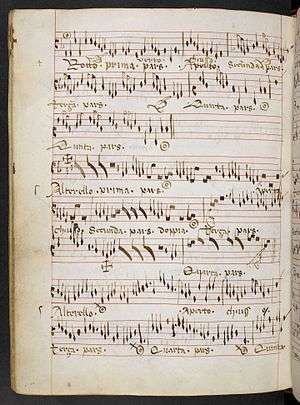 Rotto. prima. pars. Secunda. pars.
Terza. pars. Quarta. pars.
Quinta. pars.
Alterello. prima. pars. Aperto
chiuso. Secunda. pars. doppia. Terza. pars.
Quarta. pars.
Alterello. Aperto chiuso
Terza. pars. Quarta. pars. Quinta